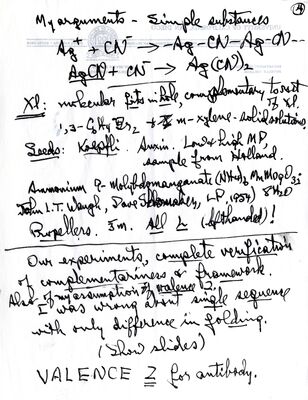 ④
My arguments - Simple substances
Ag⁺ + CN⁻ → -Ag-CN-Ag-CN--
AgCN + CN⁻ → Ag(CN)₂⁻
Xl: molecular fits in hole, complementary to rest of xl.
1,3-C₆H₄ m-xylene - solid solutions
Seeds: Kögl. Auxin. Low & high M.P.
sample from Holland.
Ammonium 9-molybdomanganate (NH₄)₆MnMo₉O₃₂·8H₂O
John L.T. Waugh, Dave Shoemaker, LP, 1954)
Propellers. 3m. All L (lefthanded)!
Our experiments, complete verification
of complementariness & framework.
Also of my assumption of valence 2.
I was wrong about single sequence
with only difference in folding.
(Show slides)
VALENCE 2 for antibody.